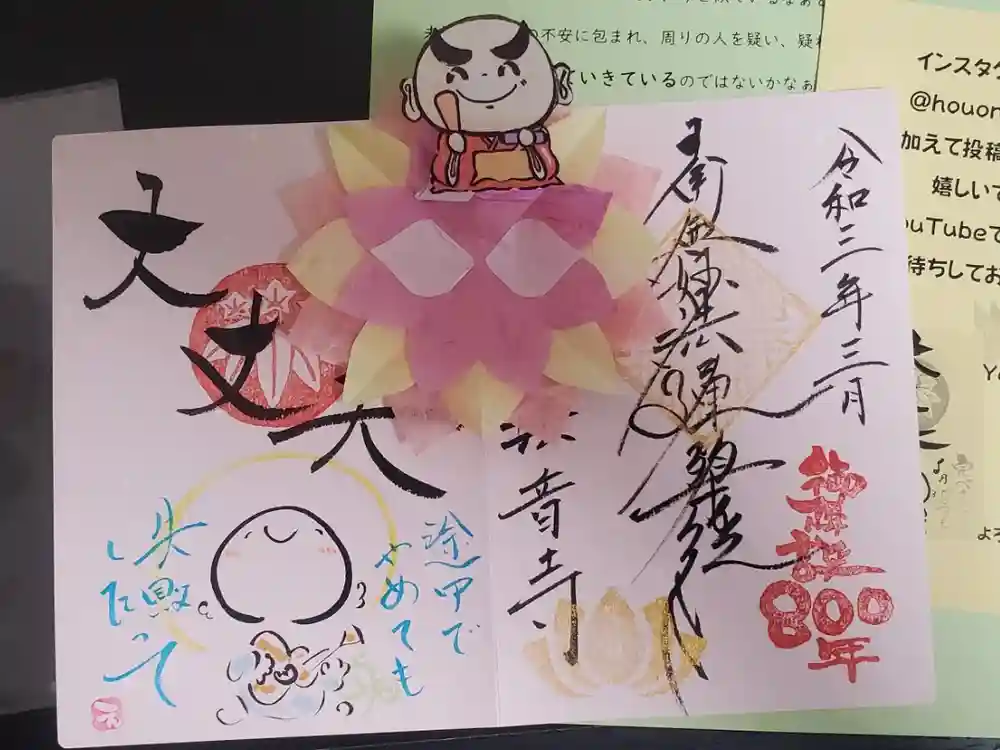 令和三年三月
南無妙法蓮華経
音寺
御降誕
800年
大丈夫
途中で
やめても
失敗
したって
の不安に包まれ、周りの人を疑い、疑
いきているのではないかなぁ
インスタ
@houon
加えて投稿
嬉しいで
ouTubeで
待ちしてお